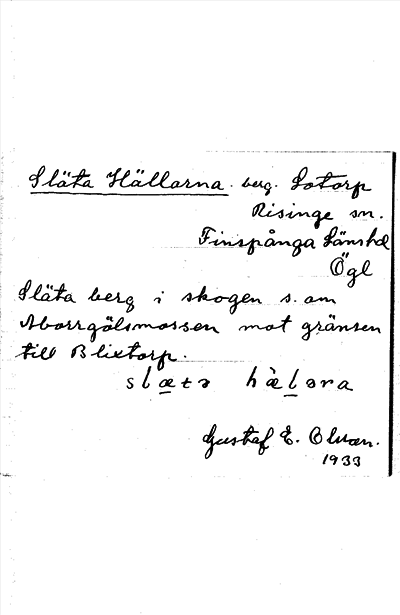 Släta Hällarna. berg. Lotorp
Risinge sn.
Finspånga Länshd
Ögl
Släta berg i skogen s. om
Aborrgölsmossen mot gränsen
till Blixtorp.
slætə hæ̀ləra
Gustaf E. Olsson.
1933